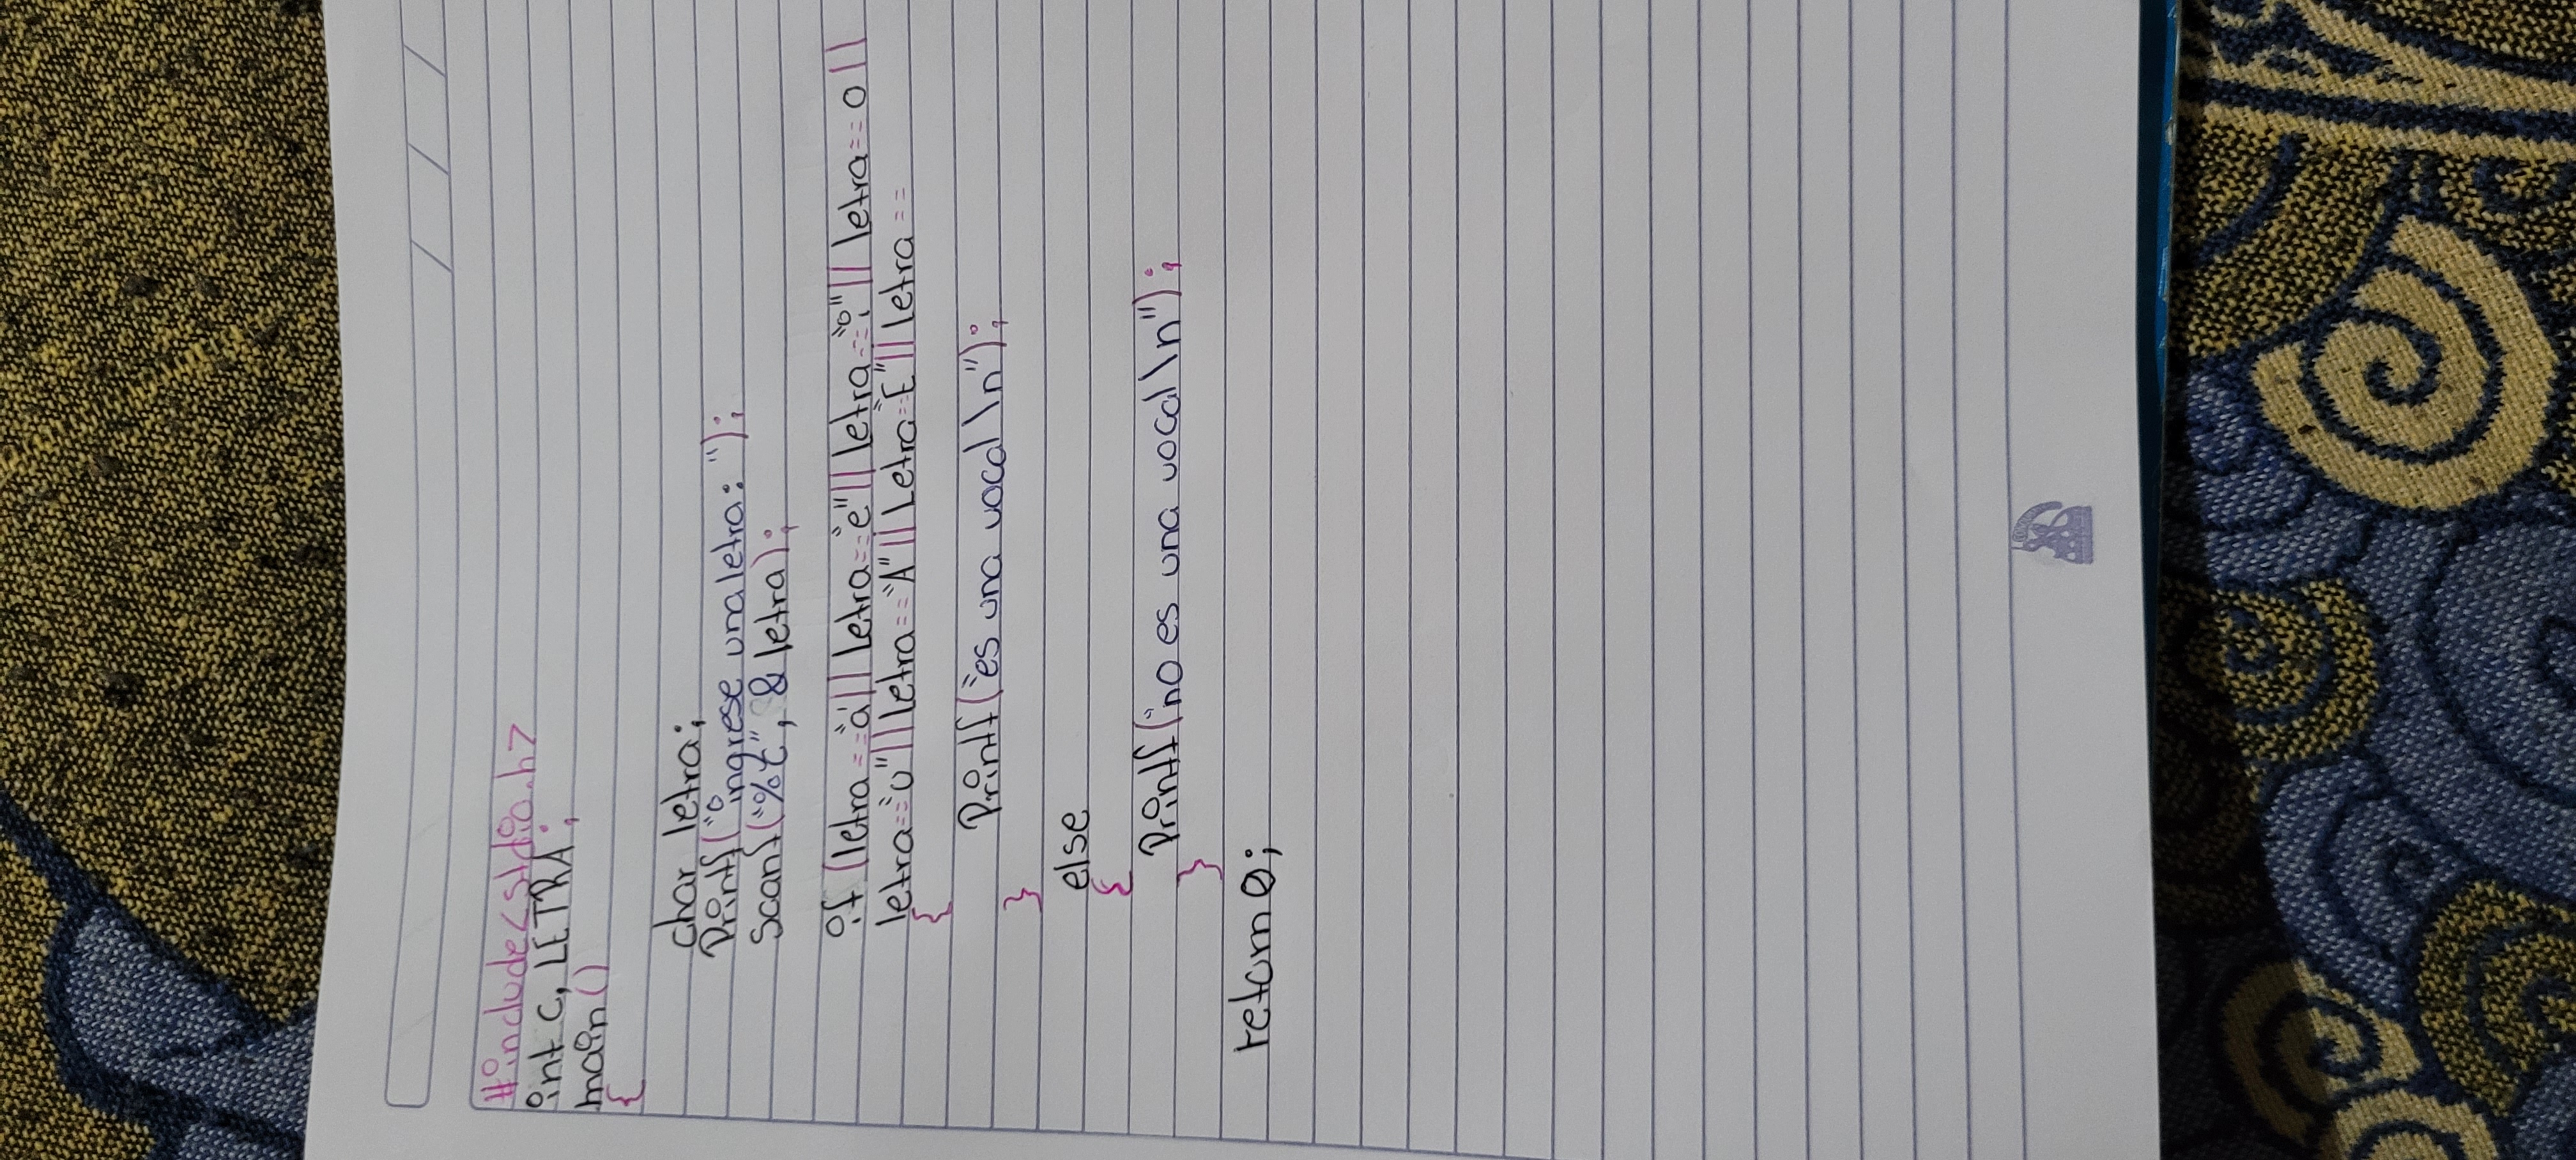 #include<stdio.h>
int c, LETRA;
main()
{
char letra;
Printf("ingrese una letra: ");
Scanf("%t", &letra);
if (letra=="a"|| letra=="e"|| letra=="i"|| letra==o||
letra=="u"||letra=="A"|| Letra="E"|| letra==
{
Printf("es una vocal\n");
}
else
{
Printf("no es una vocal\n");
}
return 0;